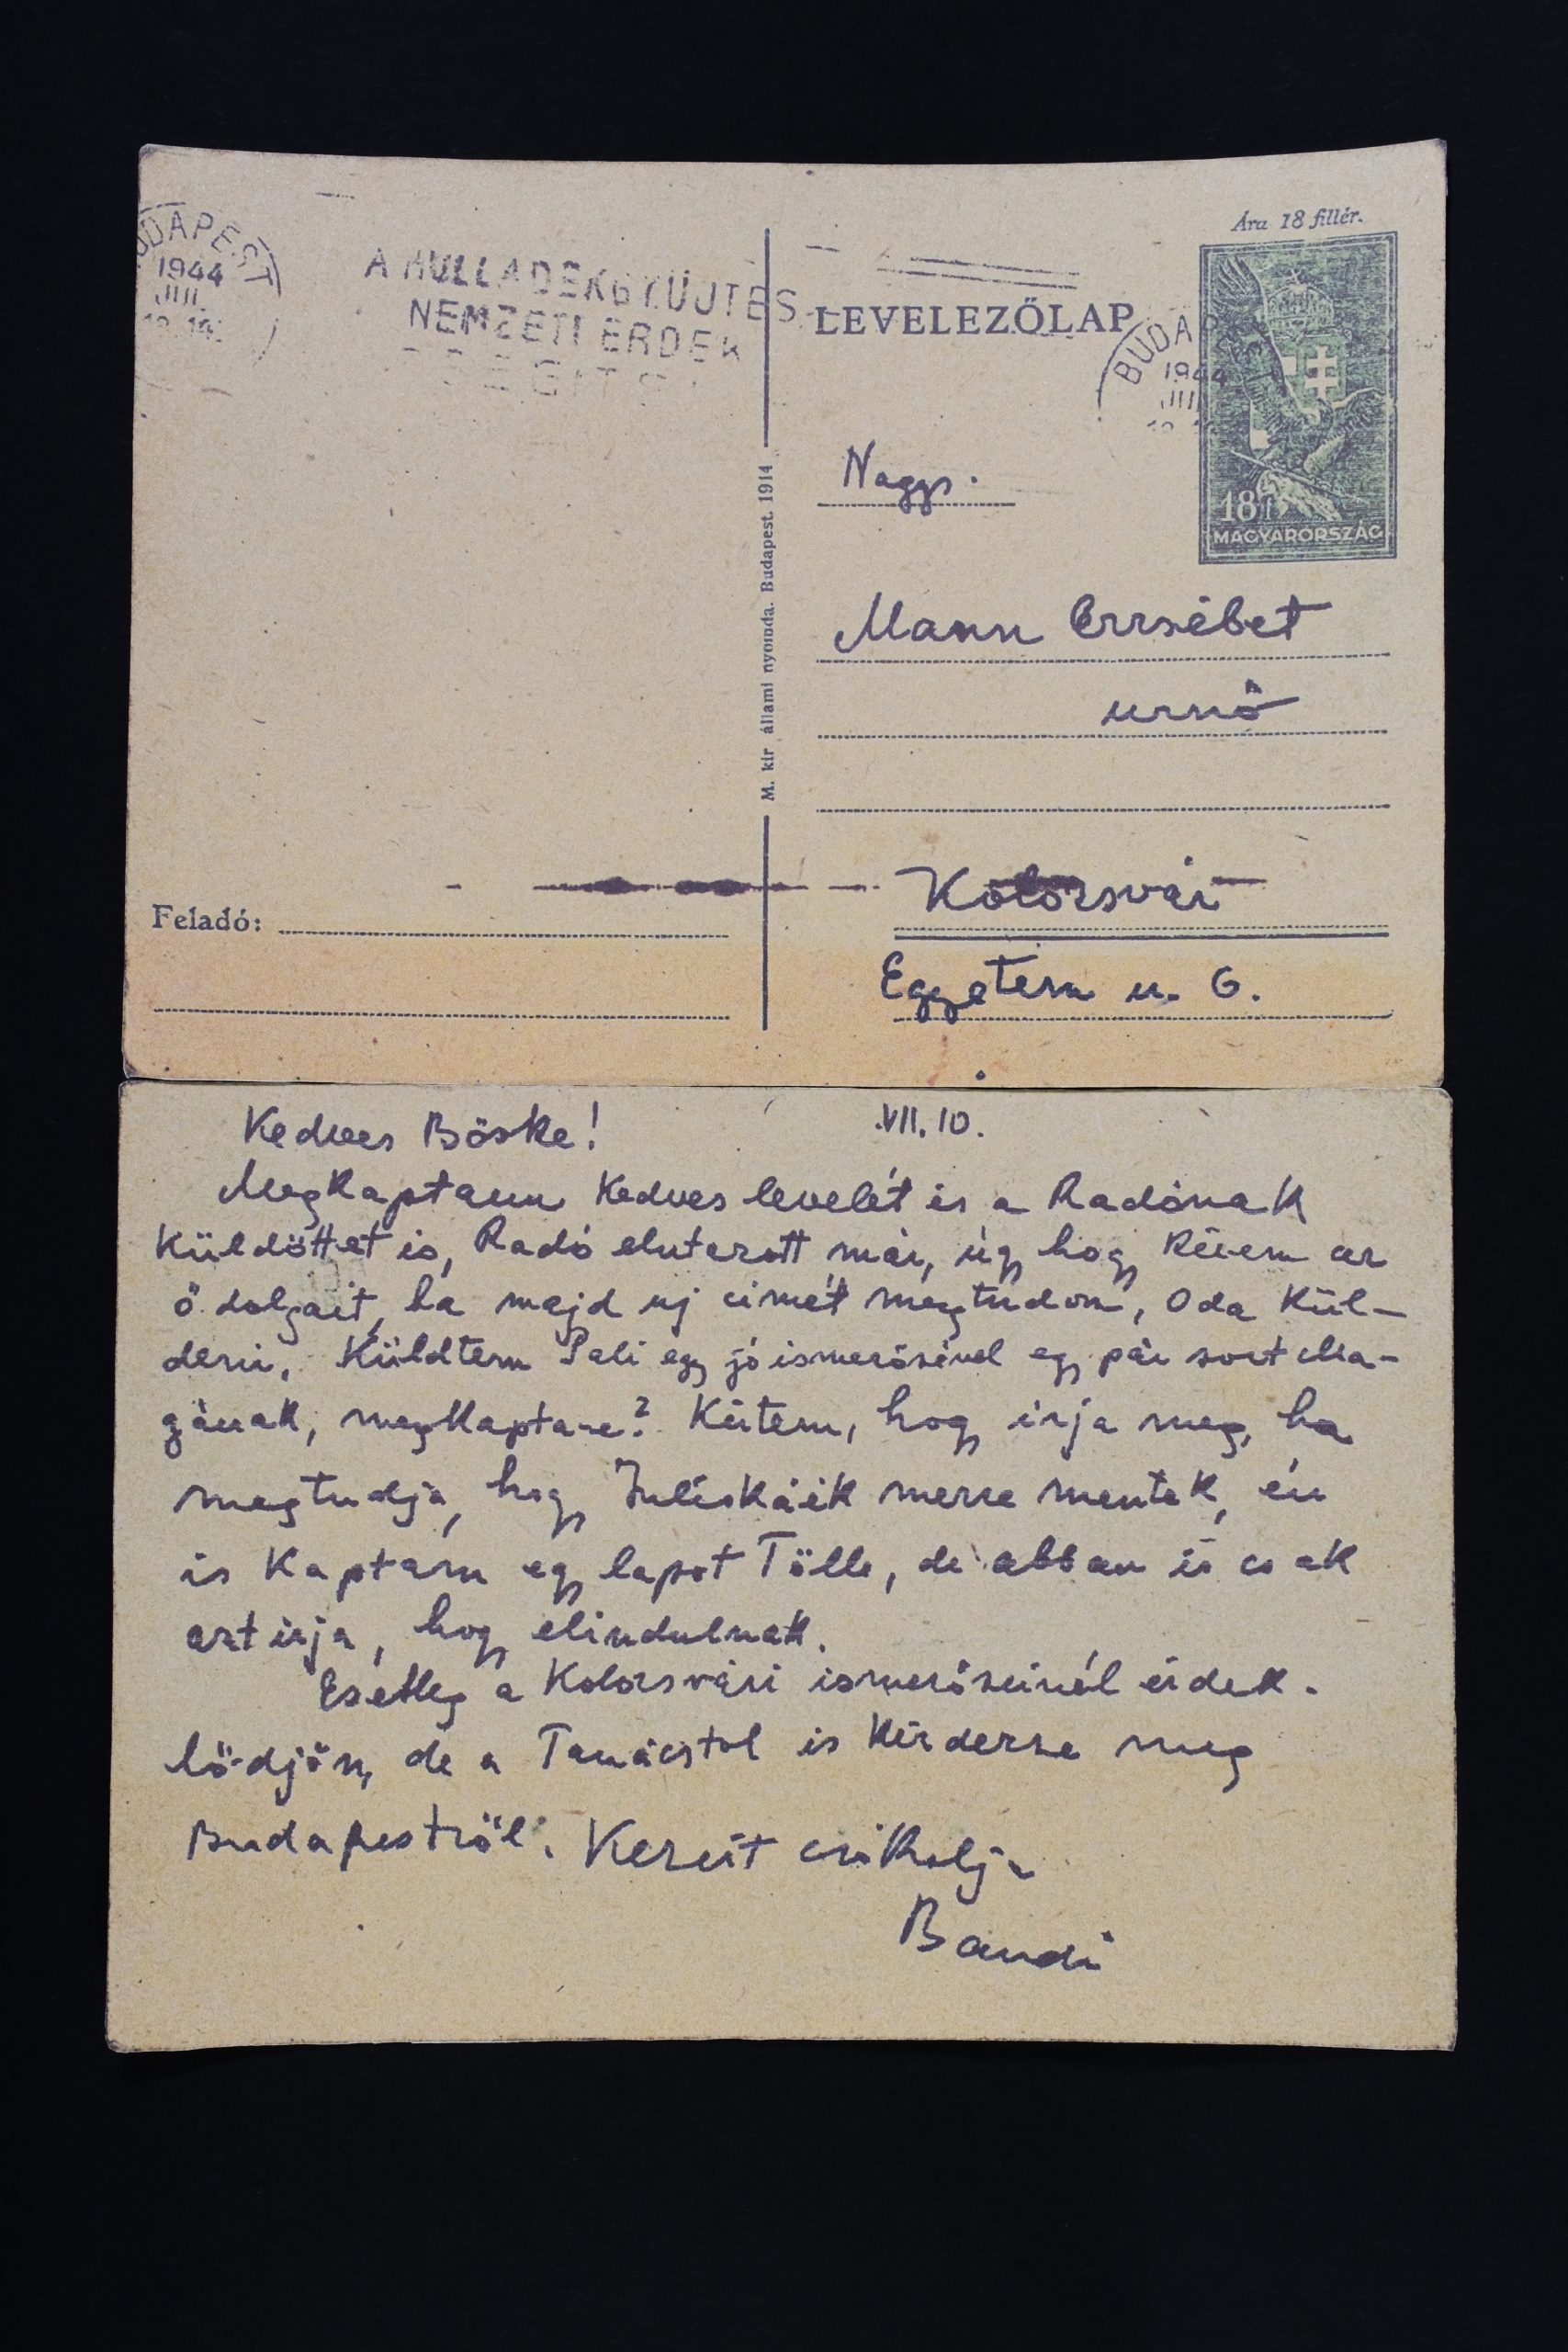 Ára 18 fillér.
BUDAPEST
1944
JUL.
A HULLADÉKGYÜJTÉS
NEMZETI ÉRDEK
LEVELEZŐLAP
BUDAP
1944
JUL
18f
MAGYARORSZÁG
Nagys.
M. kir állami nyomda. Budapest. 1914
Mann Erzsébet
urnő
Kolozsvár
Feladó:
Egyetem u. 6.
Kedves Böske! VII. 10.
Megkaptam kedves levelét és a Radónak
küldöttet is, Radó elutazott már, úgy hogy kérem az
ő dolgait, ha majd uj cimét megtudom, oda kül-
deni. Küldtem Pali egy jó ismerősével egy pár sort Ma-
gának, megkapta-e? Kérem, hogy irja meg, ha
megtudja, hogy Juliskáék merre mentek, én
is kaptam egy lapot Tőlle, de abban is csak
azt irja, hogy elindulnak.
Esetleg a kolozsvári ismerőseinél érdek-
lődjön, de a Tanácstol is kérdezze meg
Budapestről. Kezeit csókolja
Bandi